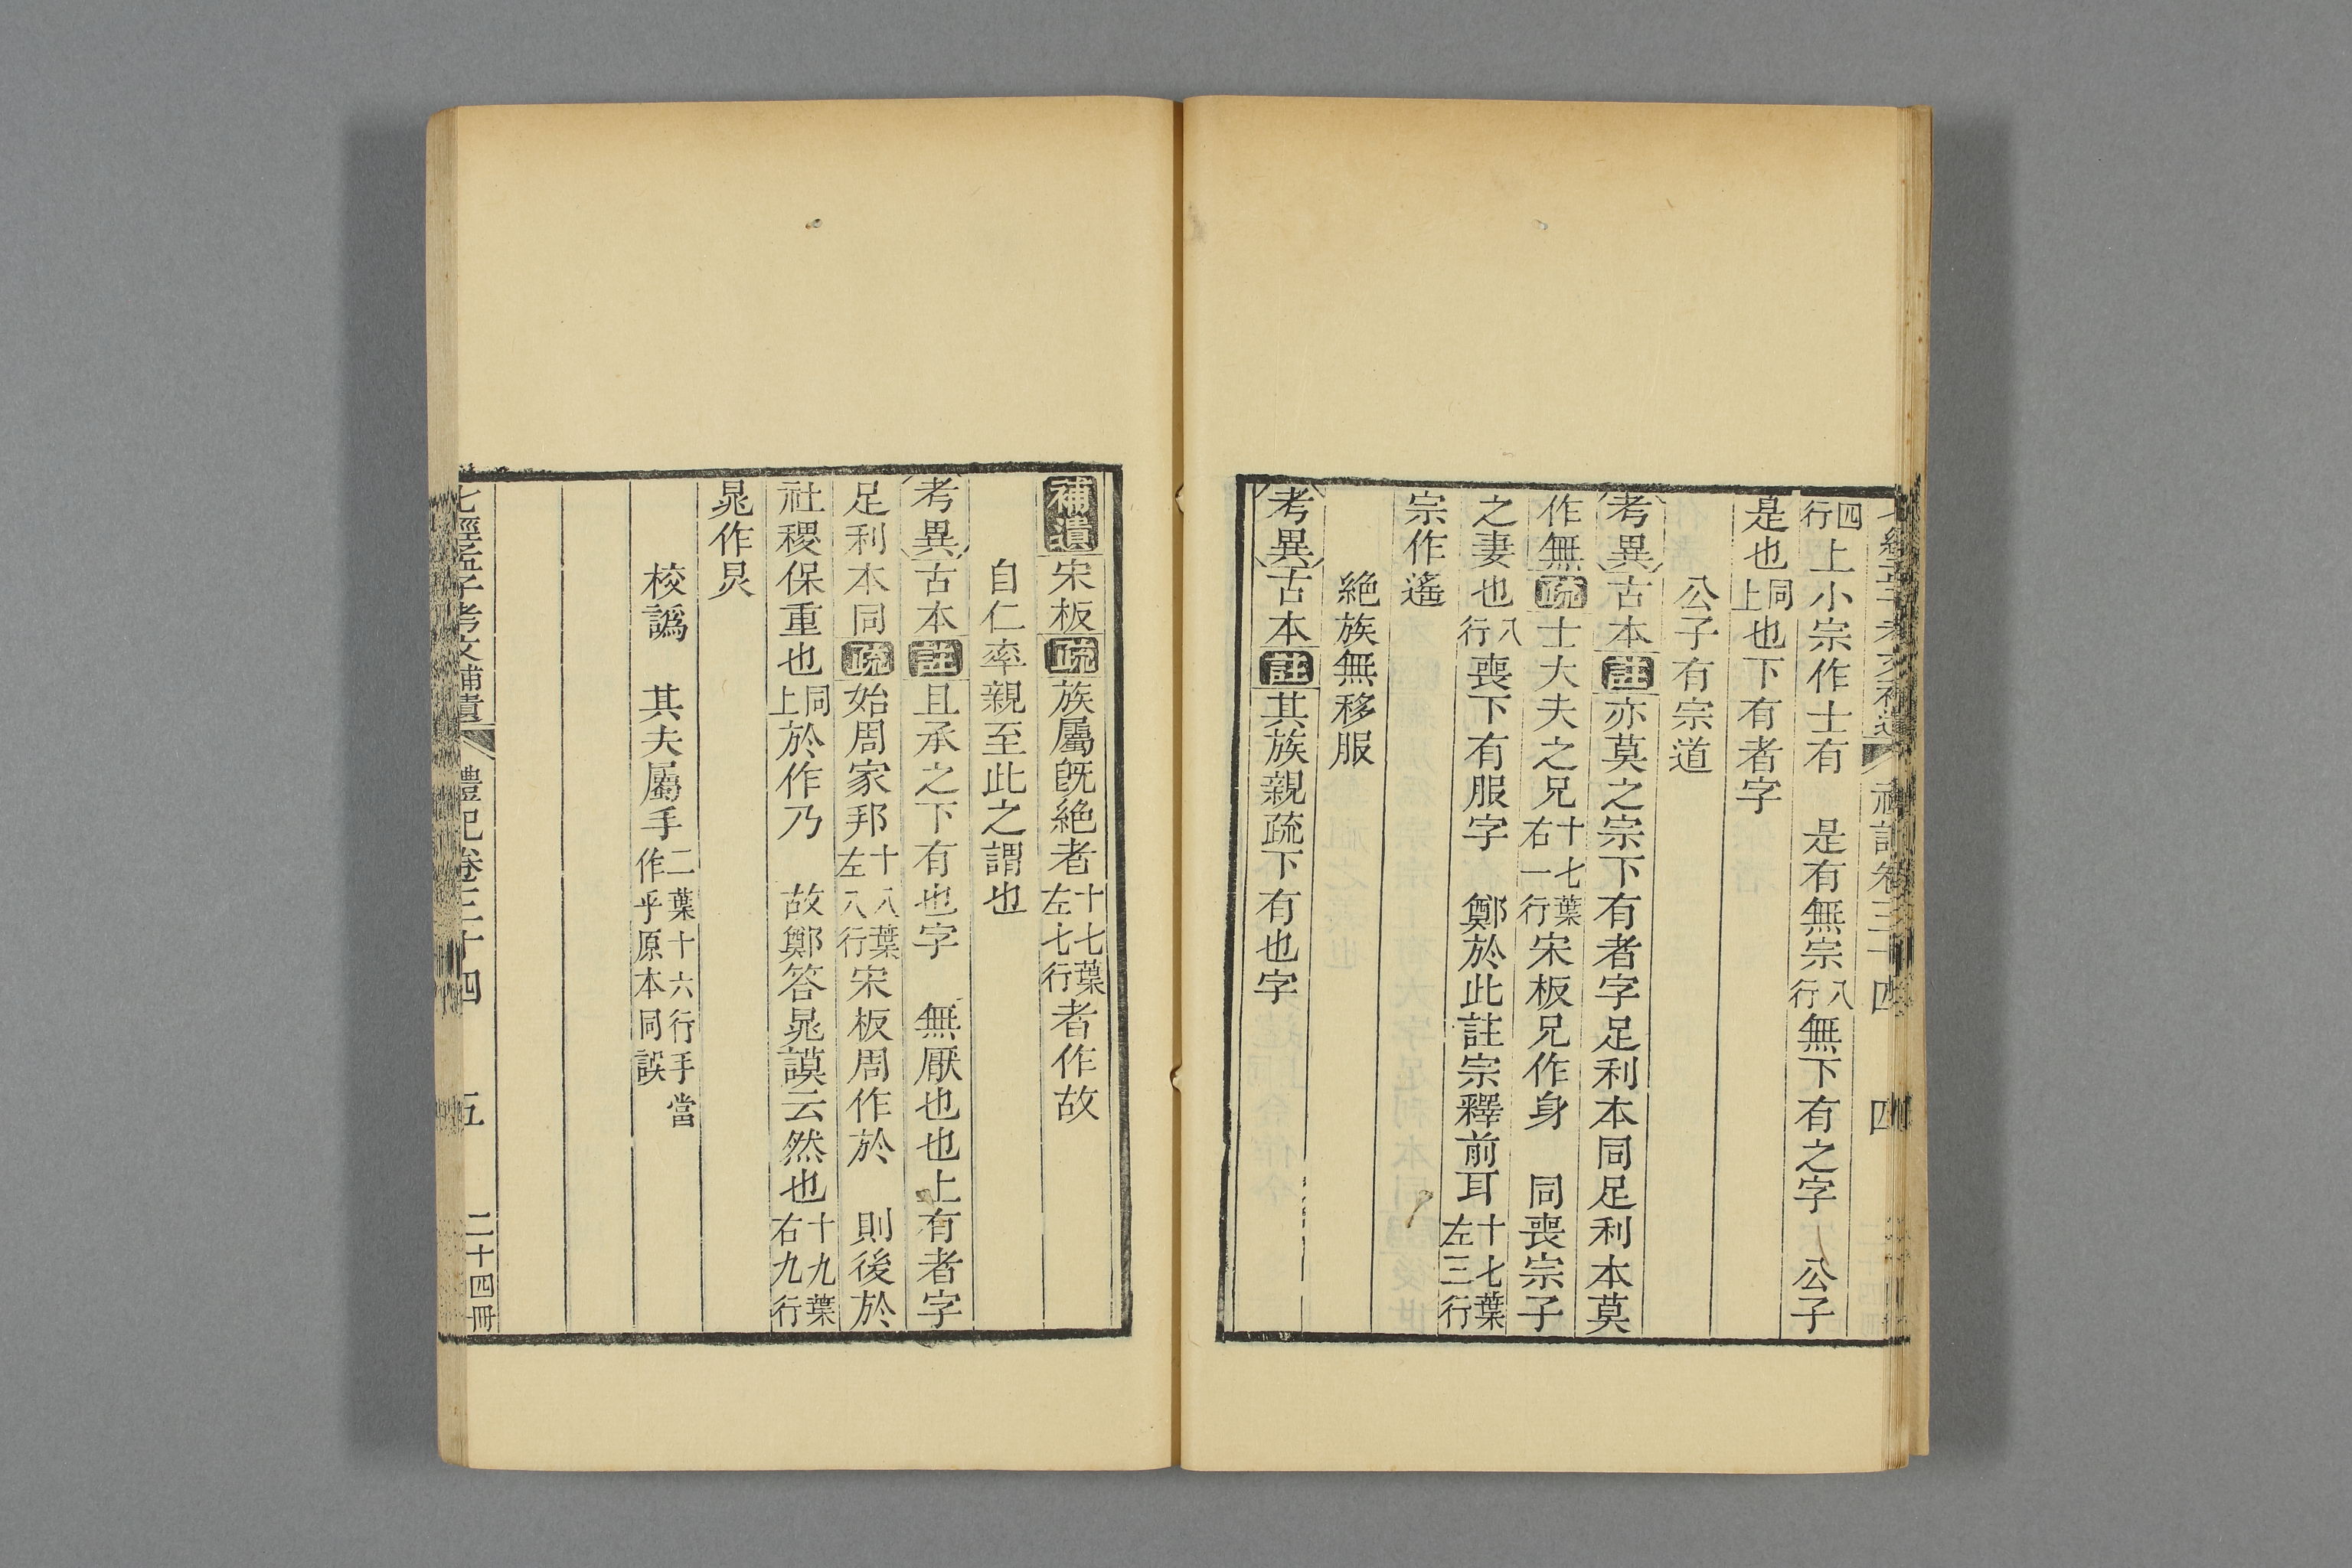 四行上小宗作士有　是有無宗八行無下有之字　公子
是也同上也下有者字
公子有宗道
考異古本註亦莫之宗下有者字足利本同足利本莫
作無疏士大夫之兄十七葉右一行宋板兄作身　同喪宗子
之妻也八行喪下有服字　鄭於此註宗釋前耳十七葉左三行
宗作遙
絶族無移服
考異古本註其族親疏下有也字
補遺宋板疏族屬既絶者十七葉左七行者作故
自仁率親至此之謂也
考異古本註且承之下有也字　無厭也也上有者字
足利本同疏始周家邦十八葉左八行宋板周作於　則後於
社稷保重也同上於作乃　故鄭答晁謨云然也十九葉右九行
晁作炅
校譌　其夫屬手二葉十六行手當作乎原本同誤
七經孟子考文補遺　禮記卷三十四　五　二十四冊